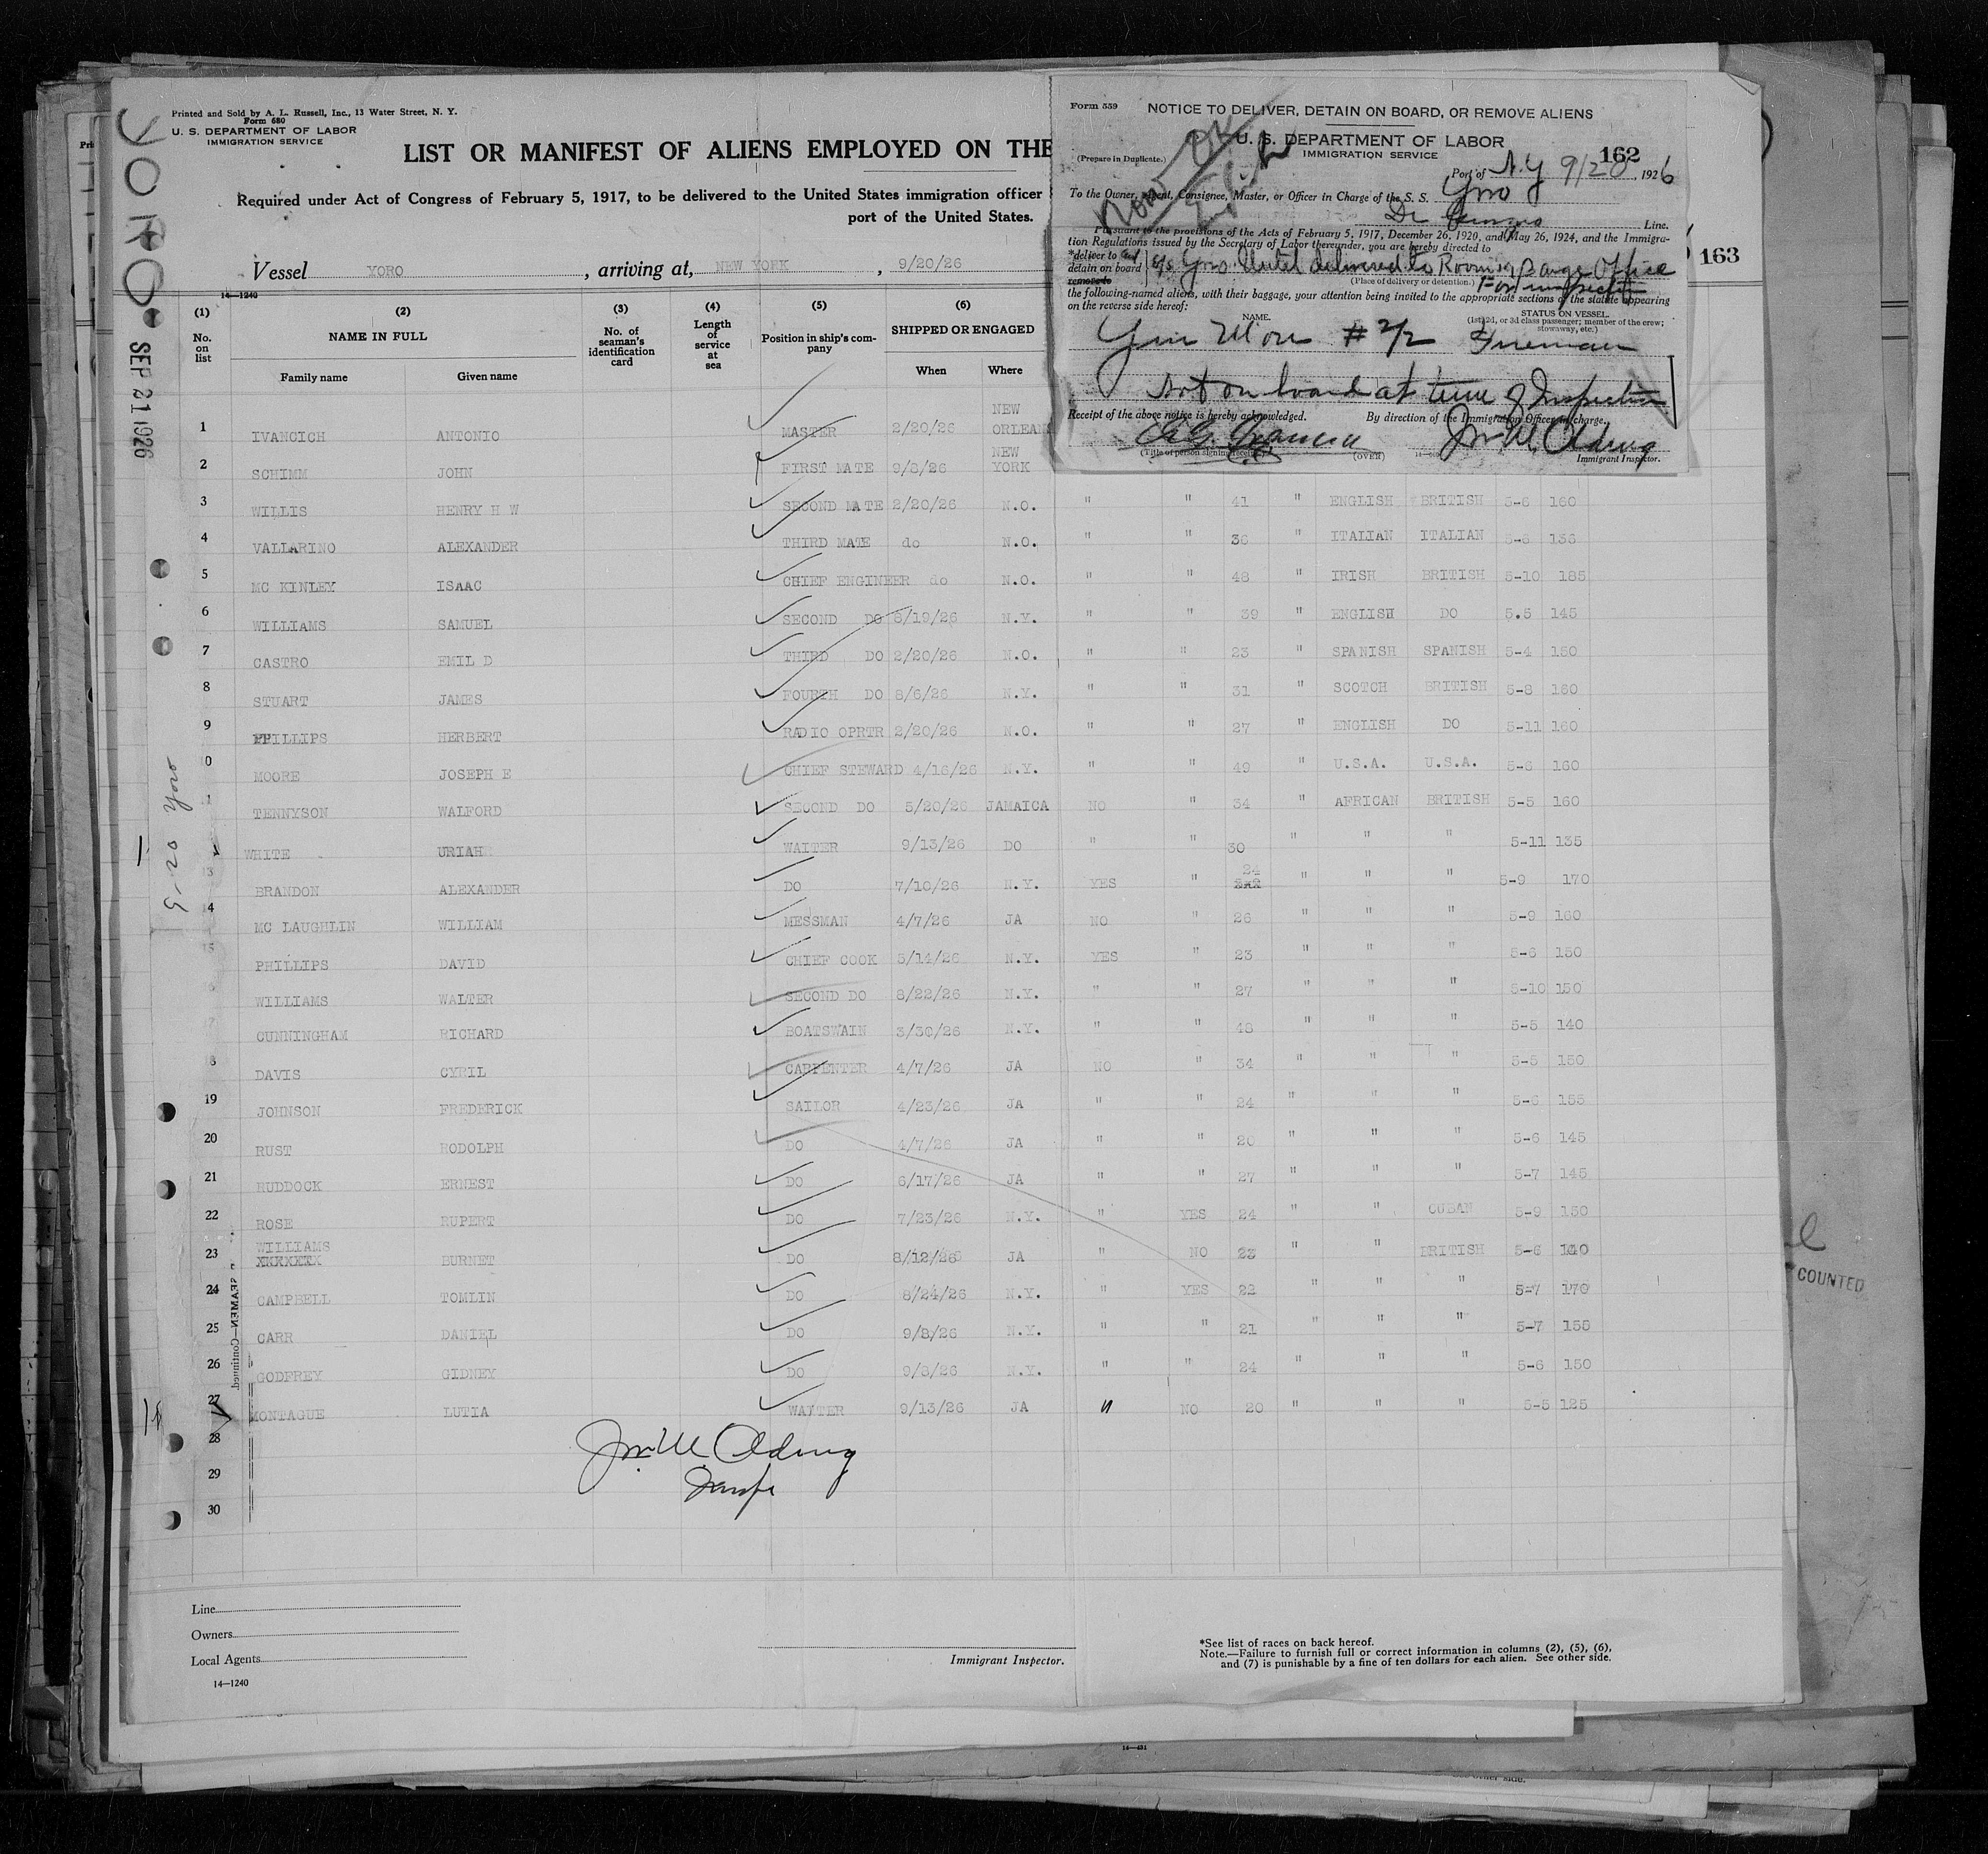 Printed and Sold by A. L. Russell, Inc., 13 Water Street, N. Y.
Form 680
U. S. DEPARTMENT OF LABOR
IMMIGRATION SERVICE
LIST OR MANIFEST OF ALIENS EMPLOYED ON THE
Required under Act of Congress of February 5, 1917, to be delivered to the United States immigration officer
port of the United States.
Vessel YORO, arriving at, NEW YORK, 9/20/26
14—1240
YORO
SEP 21 1926
9-20 Yoro
Form 559
NOTICE TO DELIVER, DETAIN ON BOARD, OR REMOVE ALIENS
U. S. DEPARTMENT OF LABOR
IMMIGRATION SERVICE
162
(Prepare in Duplicate.)
Port of N.Y 9/20, 1926
To the Owner, Agent, Consignee, Master, or Officer in Charge of the S. S. Yoro
Line.
Pursuant to the provisions of the Acts of February 5, 1917, December 26, 1920, and May 26, 1924, and the Immigra-
tion Regulations issued by the Secretary of Labor thereunder, you are hereby directed to
*deliver to
detain on board
remove to
s/s Yoro Until delivered to Room Barge Office
(Place of delivery or detention.) For inspection
the following-named aliens, with their baggage, your attention being invited to the appropriate sections of the statute appearing
on the reverse side hereof:
NAME. STATUS ON VESSEL.
(1st, 2d, or 3d class passenger; member of the crew;
stowaway, etc.)
# 2/2 Fireman
Not on board at time of Inspection
Receipt of the above notice is hereby acknowledged. By direction of the Immigration Officer in charge.
(Title of person signing receipt.) (OVER) Immigrant Inspector.
163
(1) (2) (3) (4) (5) (6)
No. on list NAME IN FULL No. of seaman's identification card Length of service at sea Position in ship's company SHIPPED OR ENGAGED
Family name Given name When Where
1 IVANCICH ANTONIO MASTER 2/20/26 NEW ORLEAN
2 SCHIMM JOHN FIRST MATE 9/8/26 NEW YORK
3 WILLIS HENRY H W SECOND MATE 2/20/26 N.O. " " 41 " ENGLISH BRITISH 5-6 160
4 VALLARINO ALEXANDER THIRD MATE do N.O. " " 36 " ITALIAN ITALIAN 5-6 156
5 MC KINLEY ISAAC CHIEF ENGINEER do N.O. " " 48 " IRISH BRITISH 5-10 185
6 WILLIAMS SAMUEL SECOND DO 8/19/26 N.Y. " " 39 " ENGLISH DO 5.5 145
7 CASTRO EMIL D THIRD DO 2/20/26 N.O. " " 23 " SPANISH SPANISH 5-4 150
8 STUART JAMES FOURTH DO 8/6/26 N.Y. " " 31 " SCOTCH BRITISH 5-8 160
9 PHILLIPS HERBERT RADIO OPRTR 2/20/26 N.O. " " 27 " ENGLISH DO 5-11 160
0 MOORE JOSEPH E CHIEF STEWARD 4/16/26 N.Y. " " 49 " U.S.A. U.S.A. 5-6 160
1 TENNYSON WALFORD SECOND DO 5/20/26 JAMAICA NO " 34 " AFRICAN BRITISH 5-5 160
WHITE URIAH WAITER 9/13/26 DO " " 30 " " " 5-11 135
3 BRANDON ALEXANDER DO 7/10/26 N.Y. YES " 24 " " " 5-9 170
4 MC LAUGHLIN WILLIAM MESSMAN 4/7/26 JA NO " 26 " " " 5-9 160
5 PHILLIPS DAVID CHIEF COOK 5/14/26 N.Y. YES " 23 " " " 5-6 150
6 WILLIAMS WALTER SECOND DO 8/22/26 N.Y. " " 27 " " " 5-10 150
7 CUNNINGHAM RICHARD BOATSWAIN 3/30/26 N.Y. " " 48 " " " 5-5 140
8 DAVIS CYRIL CARPENTER 4/7/26 JA NO " 34 " " " 5-5 150
19 JOHNSON FREDERICK SAILOR 4/23/26 JA " " 24 " " " 5-6 155
20 RUST RODOLPH DO 4/7/26 JA " " 20 " " " 5-6 145
21 RUDDOCK ERNEST DO 6/17/26 JA " " 27 " " " 5-7 145
22 ROSE RUPERT DO 7/23/26 N.Y. " YES 24 " " CUBAN 5-9 150
23 WILLIAMS BURNET DO 8/12/26 JA " NO 23 " " BRITISH 5-6 140
24 CAMPBELL TOMLIN DO 8/24/26 N.Y. " YES 22 " " " 5-7 170
25 CARR DANIEL DO 9/8/26 N.Y. " " 21 " " " 5-7 155
26 GODFREY GIDNEY DO 9/8/26 N.Y. " " 24 " " " 5-6 150
27 MONTAGUE LUTIA WAITER 9/13/26 JA " NO 20 " " " 5-5 125
28
29
30
SEAMEN—Continued.
COUNTED
Line
Owners
Local Agents
Immigrant Inspector.
14—1240
*See list of races on back hereof.
Note.—Failure to furnish full or correct information in columns (2), (5), (6),
and (7) is punishable by a fine of ten dollars for each alien. See other side.
14—431